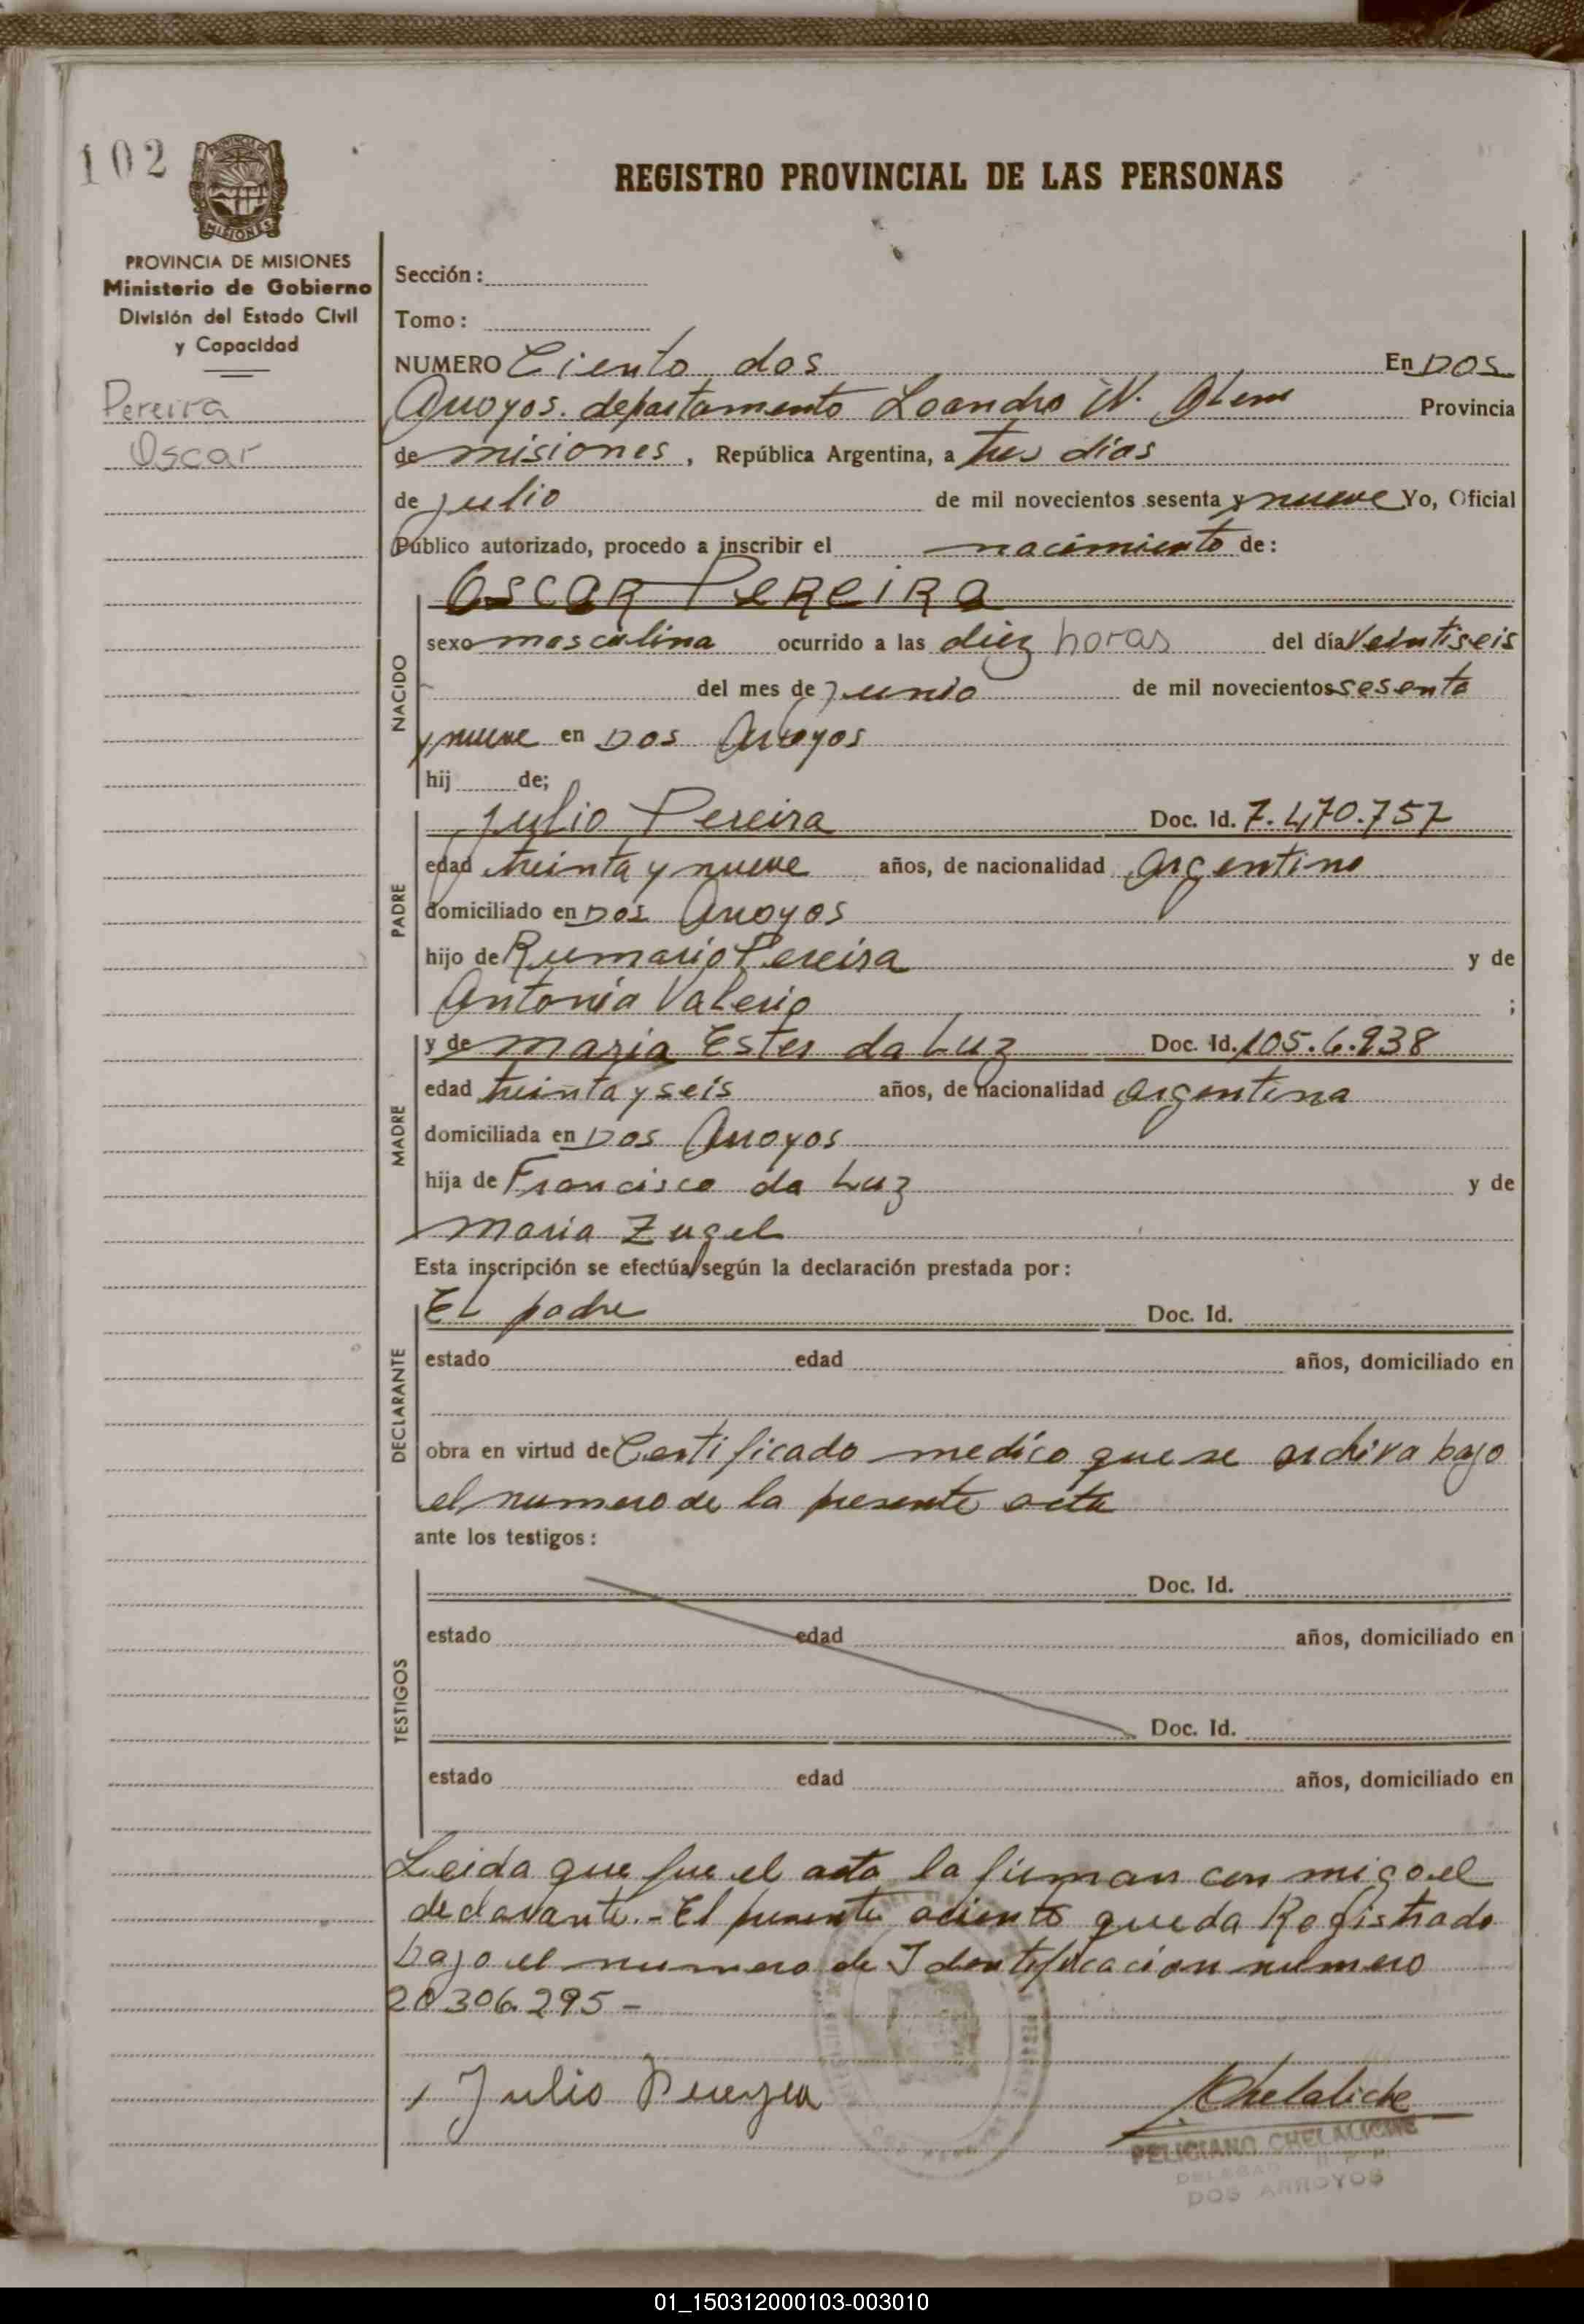 102
PROVINCIA DE MISIONES
Ministerio de Gobierno
División del Estado Civil
y Capacidad
Pereira
Oscar
REGISTRO PROVINCIAL DE LAS PERSONAS
Sección:
Tomo:
NUMERO Ciento dos En Dos
Arroyos. departamento Leandro N. Alem Provincia
de misiones, República Argentina, a tres días
de julio de mil novecientos sesenta y nueve Yo, Oficial
Público autorizado, procedo a inscribir el nacimiento de:
OSCAR PEREIRA
NACIDO
sexo masculino ocurrido a las diez horas del día Veintiseis
del mes de junio de mil novecientos sesenta
y nueve en Dos Arroyos
hij de;
PADRE
Julio Pereira Doc. Id. 7.470.757
edad treinta y nueve años, de nacionalidad argentino
domiciliado en Dos Arroyos
hijo de Rumario Pereira y de
Antonia Valerio ;
MADRE
y de maria Ester da Luz Doc. Id. 105.6.938
edad treinta y seis años, de nacionalidad argentina
domiciliada en Dos Arroyos
hija de Francisco da Luz y de
maria Zugel
Esta inscripción se efectúa según la declaración prestada por:
DECLARANTE
El padre Doc. Id.
estado edad años, domiciliado en
obra en virtud de Certificado medico que se archiva bajo
el numero de la presente acta
ante los testigos:
TESTIGOS
Doc. Id.
estado edad años, domiciliado en
Doc. Id.
estado edad años, domiciliado en
Leida que fue el acta la firman con migo el
declarante.- El presente aciento queda Registrado
bajo el numero de Identificacion número
20306.295-
Julio Pereyra
Chelaliche
FELICIANO CHELALICHE
DOS ARROYOS
01_150312000103-003010